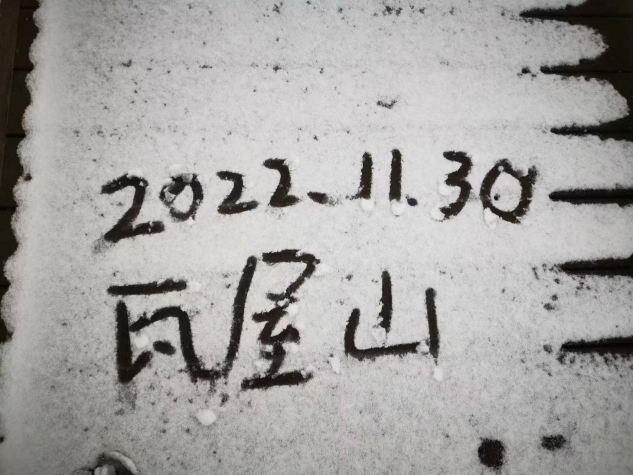 2022.11.30
瓦屋山